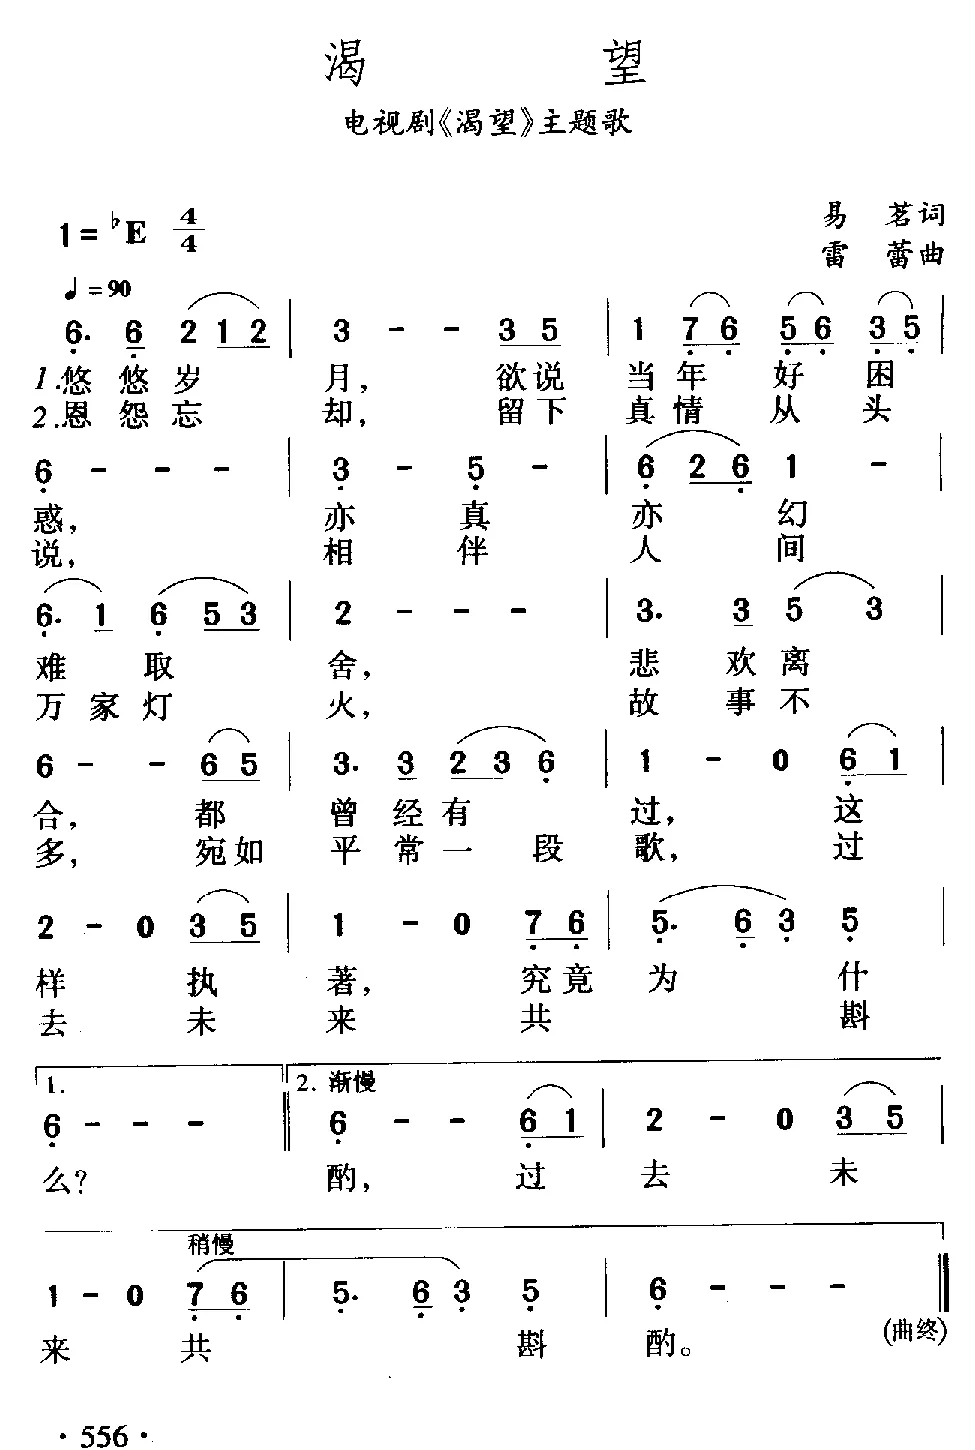 渴 望
电视剧《渴望》主题歌
1=♭E 4/4
易 茗词
雷 蕾曲
♩=90
6. 6 2 1 2 | 3 - - 3 5 | 1 7 6 5 6 3 5 |
1.悠 悠 岁 月, 欲 说 当 年 好 困
2.恩 怨 忘 却, 留 下 真 情 从 头
6 - - - | 3 - 5 - | 6 2 6 1 - |
惑, 亦 真 亦 幻
说, 相 伴 人 间
6. 1 6 5 3 | 2 - - - | 3. 3 5 3 |
难 取 舍, 悲 欢 离
万 家 灯 火, 故 事 不
6 - - 6 5 | 3. 3 2 3 6 | 1 - 0 6 1 |
合, 都 曾 经 有 过, 这
多, 宛 如 平 常 一 段 歌, 过
2 - 0 3 5 | 1 - 0 7 6 | 5. 6 3 5 |
样 执 著, 究 竟 为 什
去 未 来 共 斟
1. 2. 渐慢
6 - - - || 6 - - 6 1 | 2 - 0 3 5 |
么? 酌, 过 去 未
稍慢
1 - 0 7 6 | 5. 6 3 5 | 6 - - - ||
来 共 斟 酌。 (曲终)
· 556 ·